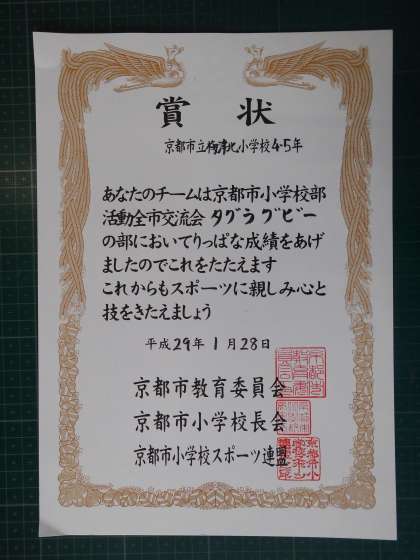 賞状
京都市立梅津北小学校4・5年
あなたのチームは京都市小学校部
活動全市交流会 タグラグビー
の部においてりっぱな成績をあげ
ましたのでこれをたたえます
これからもスポーツに親しみ心と
技をきたえましょう
平成29年1月28日
京都市教育委員会
京都市小学校長会
京都市小学校スポーツ連盟